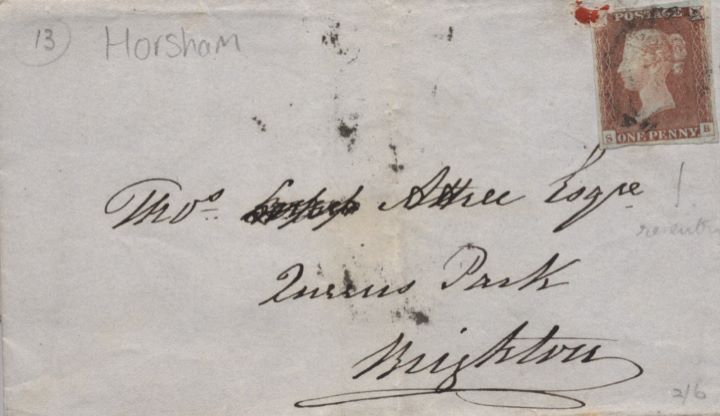 13 Horsham
POSTAGE
S ONE PENNY B
Thos. Attree Esqre
Queens Park
Brighton
2/6